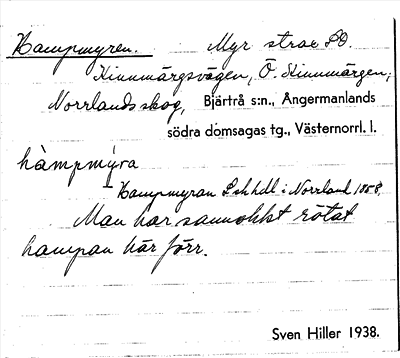 Hampmyren. Myr strax SO.
Kinnmärgsvägen, Ö. Kinnmärgen,
Norrlands skog, Bjärtrå s:n., Ångermanlands
södra domsagas tg., Västernorrl. l.
hàmpmýra
Hampmyran L.skhdl. i Norrland 1858.
Man har sannolikt rötat
hampan här förr.
Sven Hiller 1938.